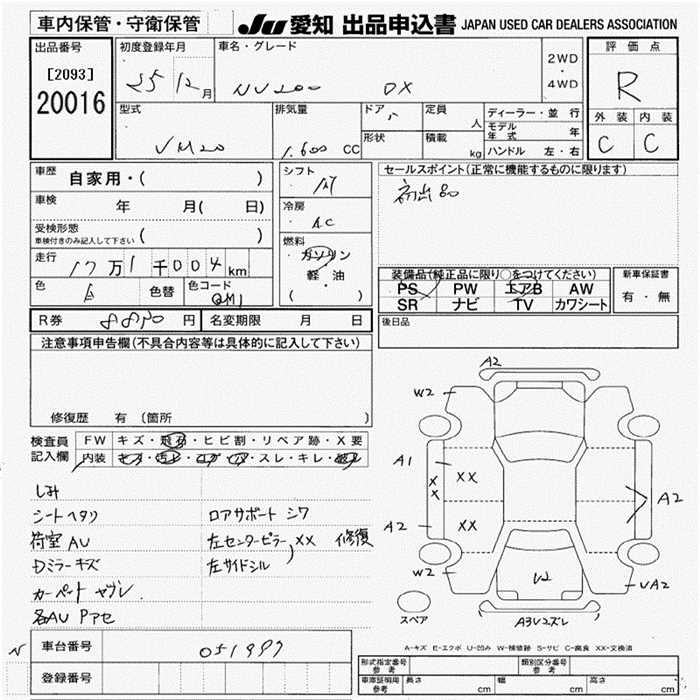 車内保管・守衛保管
JU 愛知 出品申込書 JAPAN USED CAR DEALERS ASSOCIATION
出品番号
[2093]
20016
初度登録年月
25 12月
車名・グレード
NV200 DX
2WD
・
4WD
評価点
R
外装 内装
C C
型式
VM20
排気量
1.600 CC
ドア 5
形状
定員
人
積載
kg
ディーラー・並行
モデル年式 年
ハンドル 左・右
車歴
自家用・( )
車検
年 月( 日)
受検形態
車検付きのみ記入して下さい ( )
走行
17万1千004km
色
白
色替
色コード
QM1
シフト
AT
冷房
AC
燃料
ガソリン
軽油
・
( )
セールスポイント(正常に機能するものに限ります)
初出品
装備品(純正品に限り○をつけてください)
PS PW エアB AW
SR ナビ TV カワシート
新車保証書
有・無
R券 8890円
名変期限 月 日
後日品
注意事項申告欄(不具合内容等は具体的に記入して下さい)
修復歴 有(箇所 )
検査員
記入欄
FW キズ・飛石・ヒビ割・リペア跡・X要
内装 ・スレ・キレ・
しみ
シートヘタリ ロアサポート シワ
荷室AU 左センターピラー XX 修復
Dミラーキズ 左サイドシル
カーペット ヤブレ
各AU Pアセ
N
車台番号 051997
登録番号
A2
W2
A1
XX
XX
A2
XX
A2
W2
W
UA2
スペア
A3U2ズレ
A-キズ E-エクボ U-凹み W-補修跡 S-サビ C-腐食 XX-交換済
形式指定番号 参考
類別区分番号 参考
車庫証明用 参考
長さ cm
幅 cm
高さ cm